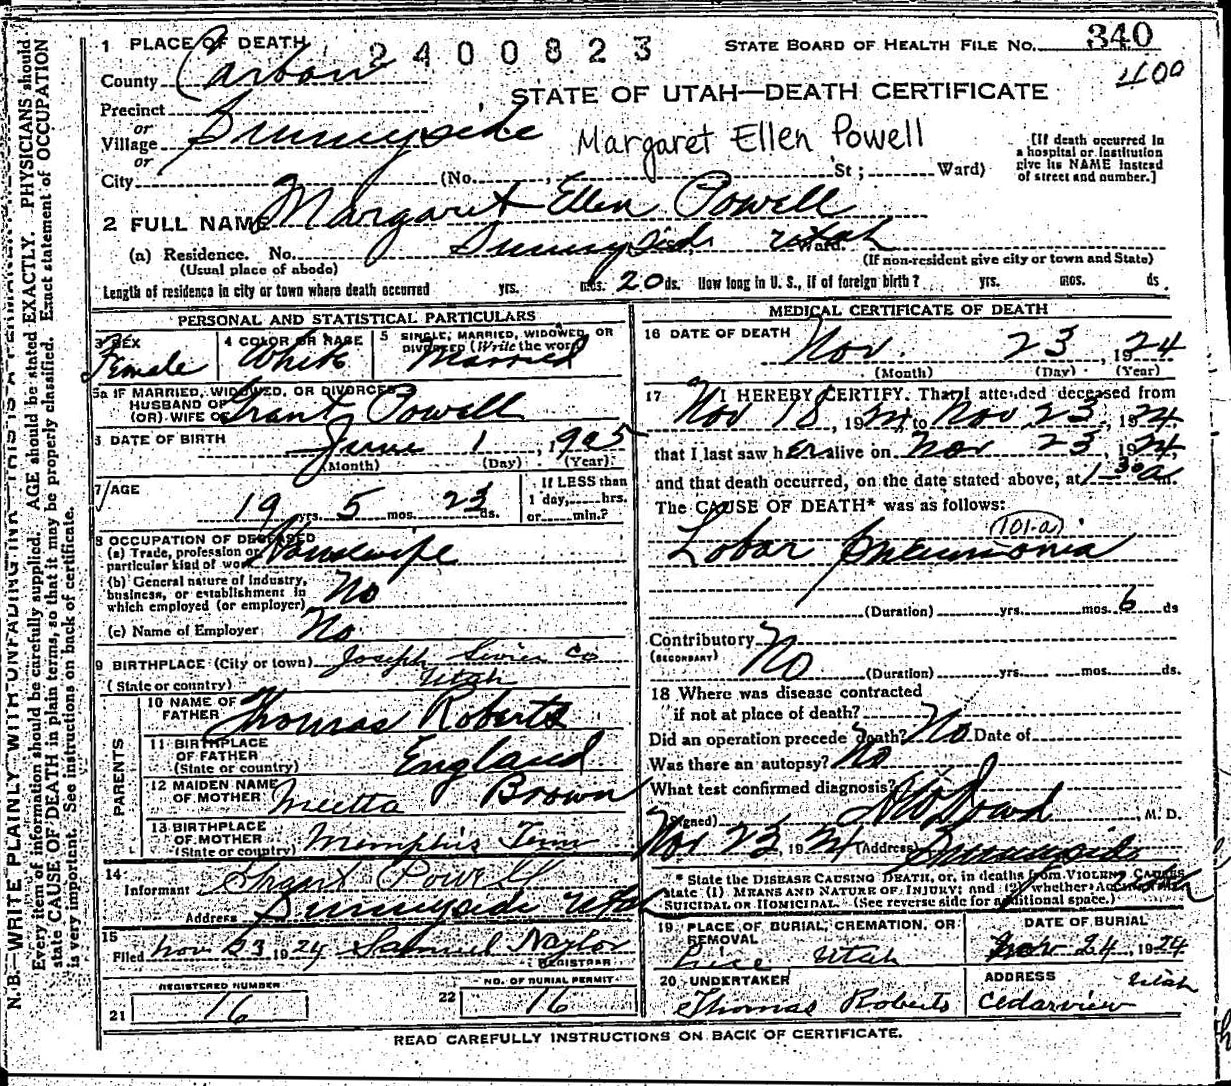 1 PLACE OF DEATH 2400823 STATE BOARD OF HEALTH FILE NO. 340
County Carbon 400
STATE OF UTAH—DEATH CERTIFICATE
Precinct
or
Village Sunnyside Margaret Ellen Powell
or
City (No. St; Ward)
[If death occurred in
a hospital or institution
give its NAME instead
of street and number.]
2 FULL NAME Margaret Ellen Powell
(a) Residence. No. Sunnyside, Utah Ward.
(Usual place of abode) (If non-resident give city or town and State)
Length of residence in city or town where death occurred yrs. mos. 20 ds. How long in U. S., if of foreign birth? yrs. mos. ds.
PERSONAL AND STATISTICAL PARTICULARS
3 SEX Female
4 COLOR OR RACE White
5 SINGLE, MARRIED, WIDOWED, OR
DIVORCED (Write the word) Married
5a IF MARRIED, WIDOWED, OR DIVORCED
HUSBAND OF
(OR) WIFE OF Grant Powell
6 DATE OF BIRTH June 1, 1905
(Month) (Day) (Year)
7 AGE 19 yrs. 5 mos. 23 ds.
If LESS than
1 day, hrs.
or min.?
8 OCCUPATION OF DECEASED
(a) Trade, profession or
particular kind of work Housewife
(b) General nature of industry,
business, or establishment in
which employed (or employer) No
(c) Name of Employer No
9 BIRTHPLACE (City or town) Joseph Sevier Co
(State or country) Utah
PARENTS
10 NAME OF
FATHER Thomas Roberts
11 BIRTHPLACE
OF FATHER
(State or country) England
12 MAIDEN NAME
OF MOTHER Meetta Brown
13 BIRTHPLACE
OF MOTHER
(State or country) Memphis Tenn
14
Informant Grant Powell
Address Sunnyside Utah
15
Filed Nov 23 1924 Samuel Naylor
REGISTRAR
REGISTERED NUMBER
21 16
NO. OF BURIAL PERMIT
22 16
MEDICAL CERTIFICATE OF DEATH
16 DATE OF DEATH Nov. 23, 1924
(Month) (Day) (Year)
17 I HEREBY CERTIFY. That I attended deceased from
Nov 18, 1924, to Nov 23, 1924,
that I last saw her alive on Nov 23, 1924,
and that death occurred, on the date stated above, at 1 30 a m.
The CAUSE OF DEATH* was as follows:
101-a
Lobar Pneumonia
(Duration) yrs. mos. 6 ds
Contributory No
(SECONDARY)
(Duration) yrs. mos. ds.
18 Where was disease contracted
if not at place of death?
Did an operation precede death? No Date of
Was there an autopsy? No
What test confirmed diagnosis?
(Signed) Dowd M. D.
Nov 23 1924 (Address) Sunnyside
Utah
* State the DISEASE CAUSING DEATH, or, in deaths from VIOLENT CAUSES
state (1) MEANS AND NATURE OF INJURY; and (2) whether ACCIDENTAL
SUICIDAL OR HOMICIDAL. (See reverse side for additional space.)
19 PLACE OF BURIAL, CREMATION, OR
REMOVAL
Price Utah
DATE OF BURIAL
Nov 24, 1924
20 UNDERTAKER
Thomas Roberts
ADDRESS Utah
Cedarview
READ CAREFULLY INSTRUCTIONS ON BACK OF CERTIFICATE.
N. B.—WRITE PLAINLY WITH UNFADING INK—THIS IS A PERMANENT
Every item of information should be carefully supplied. AGE should be stated EXACTLY. PHYSICIANS should
state CAUSE OF DEATH in plain terms, so that it may be properly classified. Exact statement of OCCUPATION
is very important. See instructions on back of certificate.